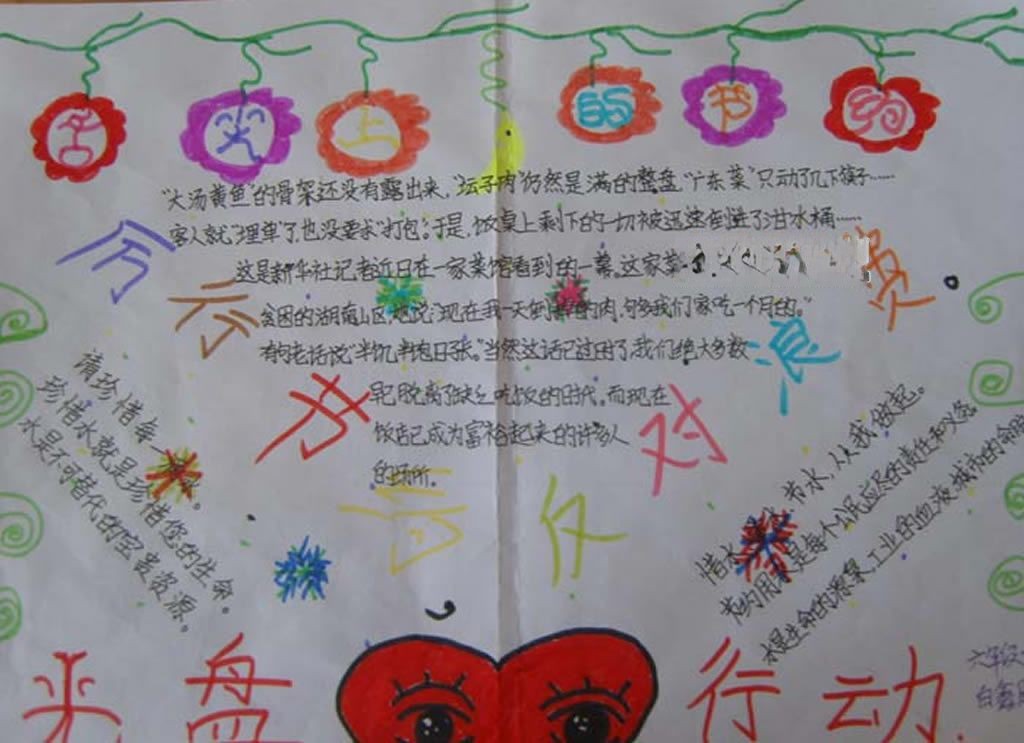 舌尖上的节约
"大汤黄鱼"的骨架还没有露出来，"坛子肉"仍然是满的整盘，"广东菜"只动了几下筷子……
客人就"埋单"了，也没要求"打包"。于是，饭桌上剩下的一切被迅速倒进了泔水桶……
这是新华社记者近日在一家菜馆看到的一幕。这家菜
贫困的湖南山区，她说："现在我一天倒掉的肉，够我们家吃一个月的。"
有句老话说"半饥半饱日子长。"当然这话已过时了，我们绝大多数
早已脱离了缺乏吃饭的时代。而现在
饭店已成为富裕起来的许多人
的场所。
厉行节约
反对浪费
请珍惜每一
珍惜水就是珍惜您的生命。
水是不可替代的宝贵资源。
惜水 节水，从我做起。
节约用水是每个公民应尽的责任和义务
水是生命的源泉，工业的血液，城市的命
光盘 行动
六年级